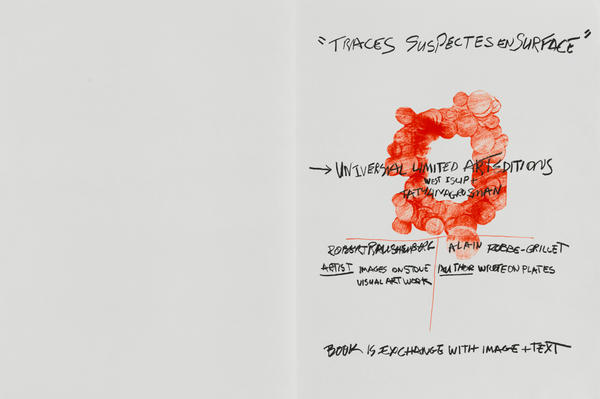 "TRACES SUSPECTES EN SURFACE"
→ UNIVERSIAL LIMITED ART EDITIONS
WEST ISLIP -
TATYANA GROSMAN
ROBERT RAUSHENBERG
ARTIST IMAGES ON STONE
VISUAL ART WORK
ALAIN ROBBE-GRILLET
AUTHOR WROTE ON PLATES
BOOK IS EXCHANGE WITH IMAGE + TEXT